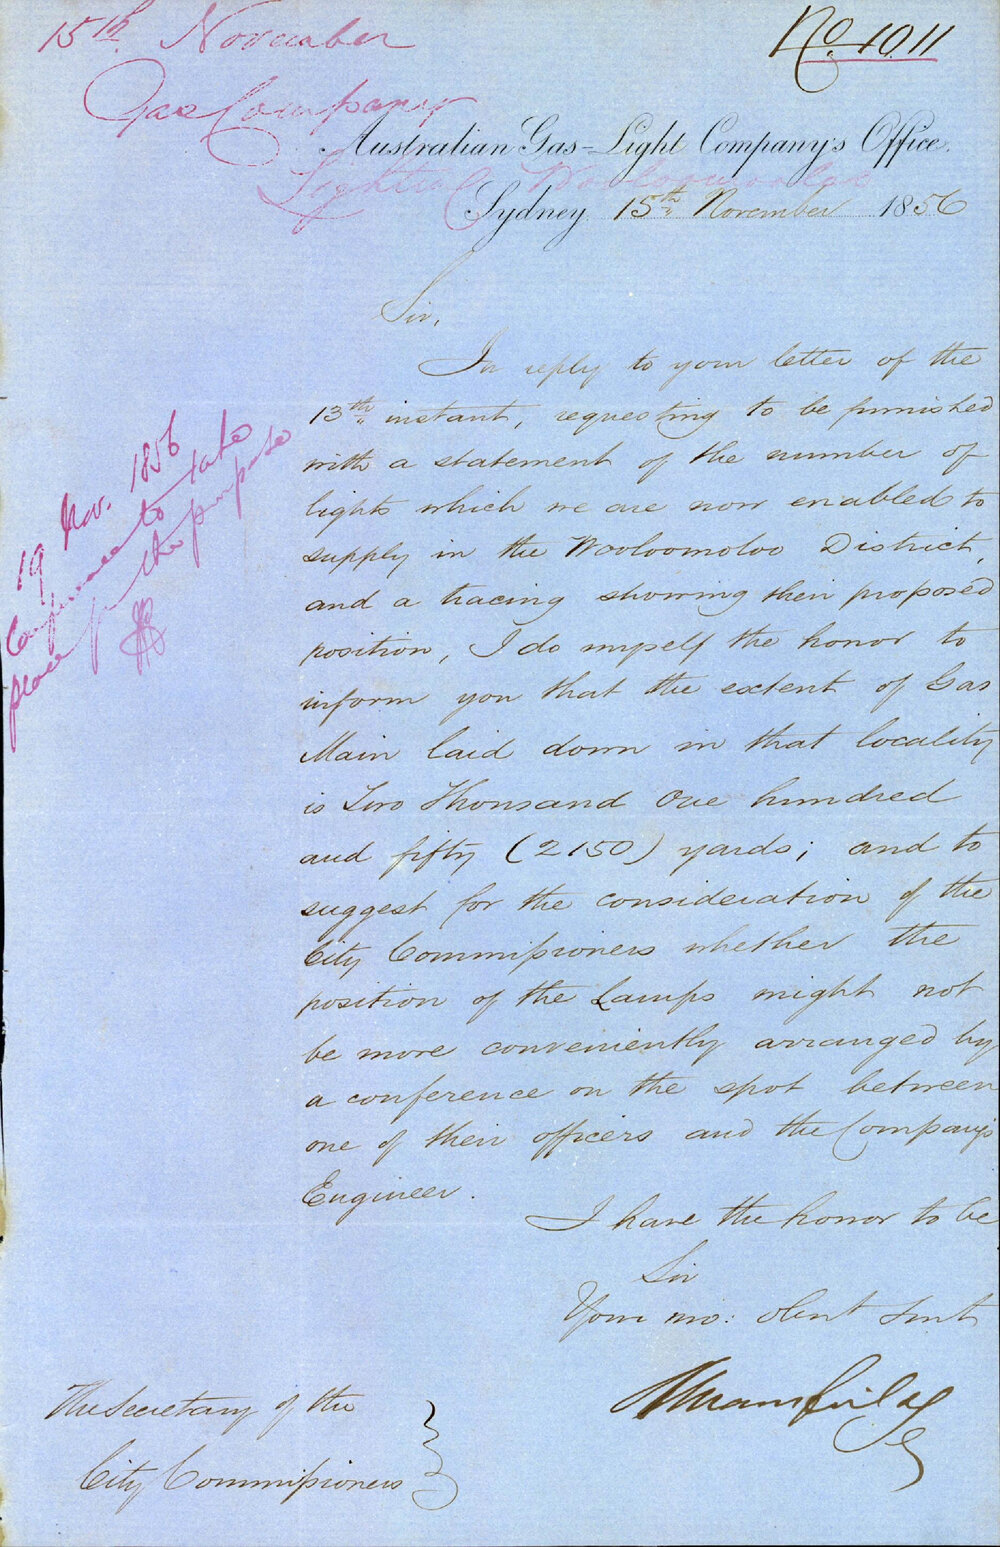 15th November
No. 1011
Gas Company
Australian Gas-Light Company's Office.
Lighting Woolloomooloo
Sydney 15th November 1856
Sir,
In reply to your letter of the
13th instant, requesting to be furnished
with a statement of the number of
lights which we are now enabled to
supply in the Wooloomoloo District,
and a tracing showing their proposed
position, I do myself the honor to
inform you that the extent of Gas
Main laid down in that locality
is Two Thousand One hundred
and fifty (2150) yards; and to
suggest for the consideration of the
City Commissioners whether the
position of the Lamps might not
be more conveniently arranged by
a conference on the spot between
one of their officers and the Company's
Engineer.
I have the honor to be
Sir
Your mo: obnt Servt
The Secretary of the
City Commissioners
19 Nov. 1856
Conference to take
place for the purpose